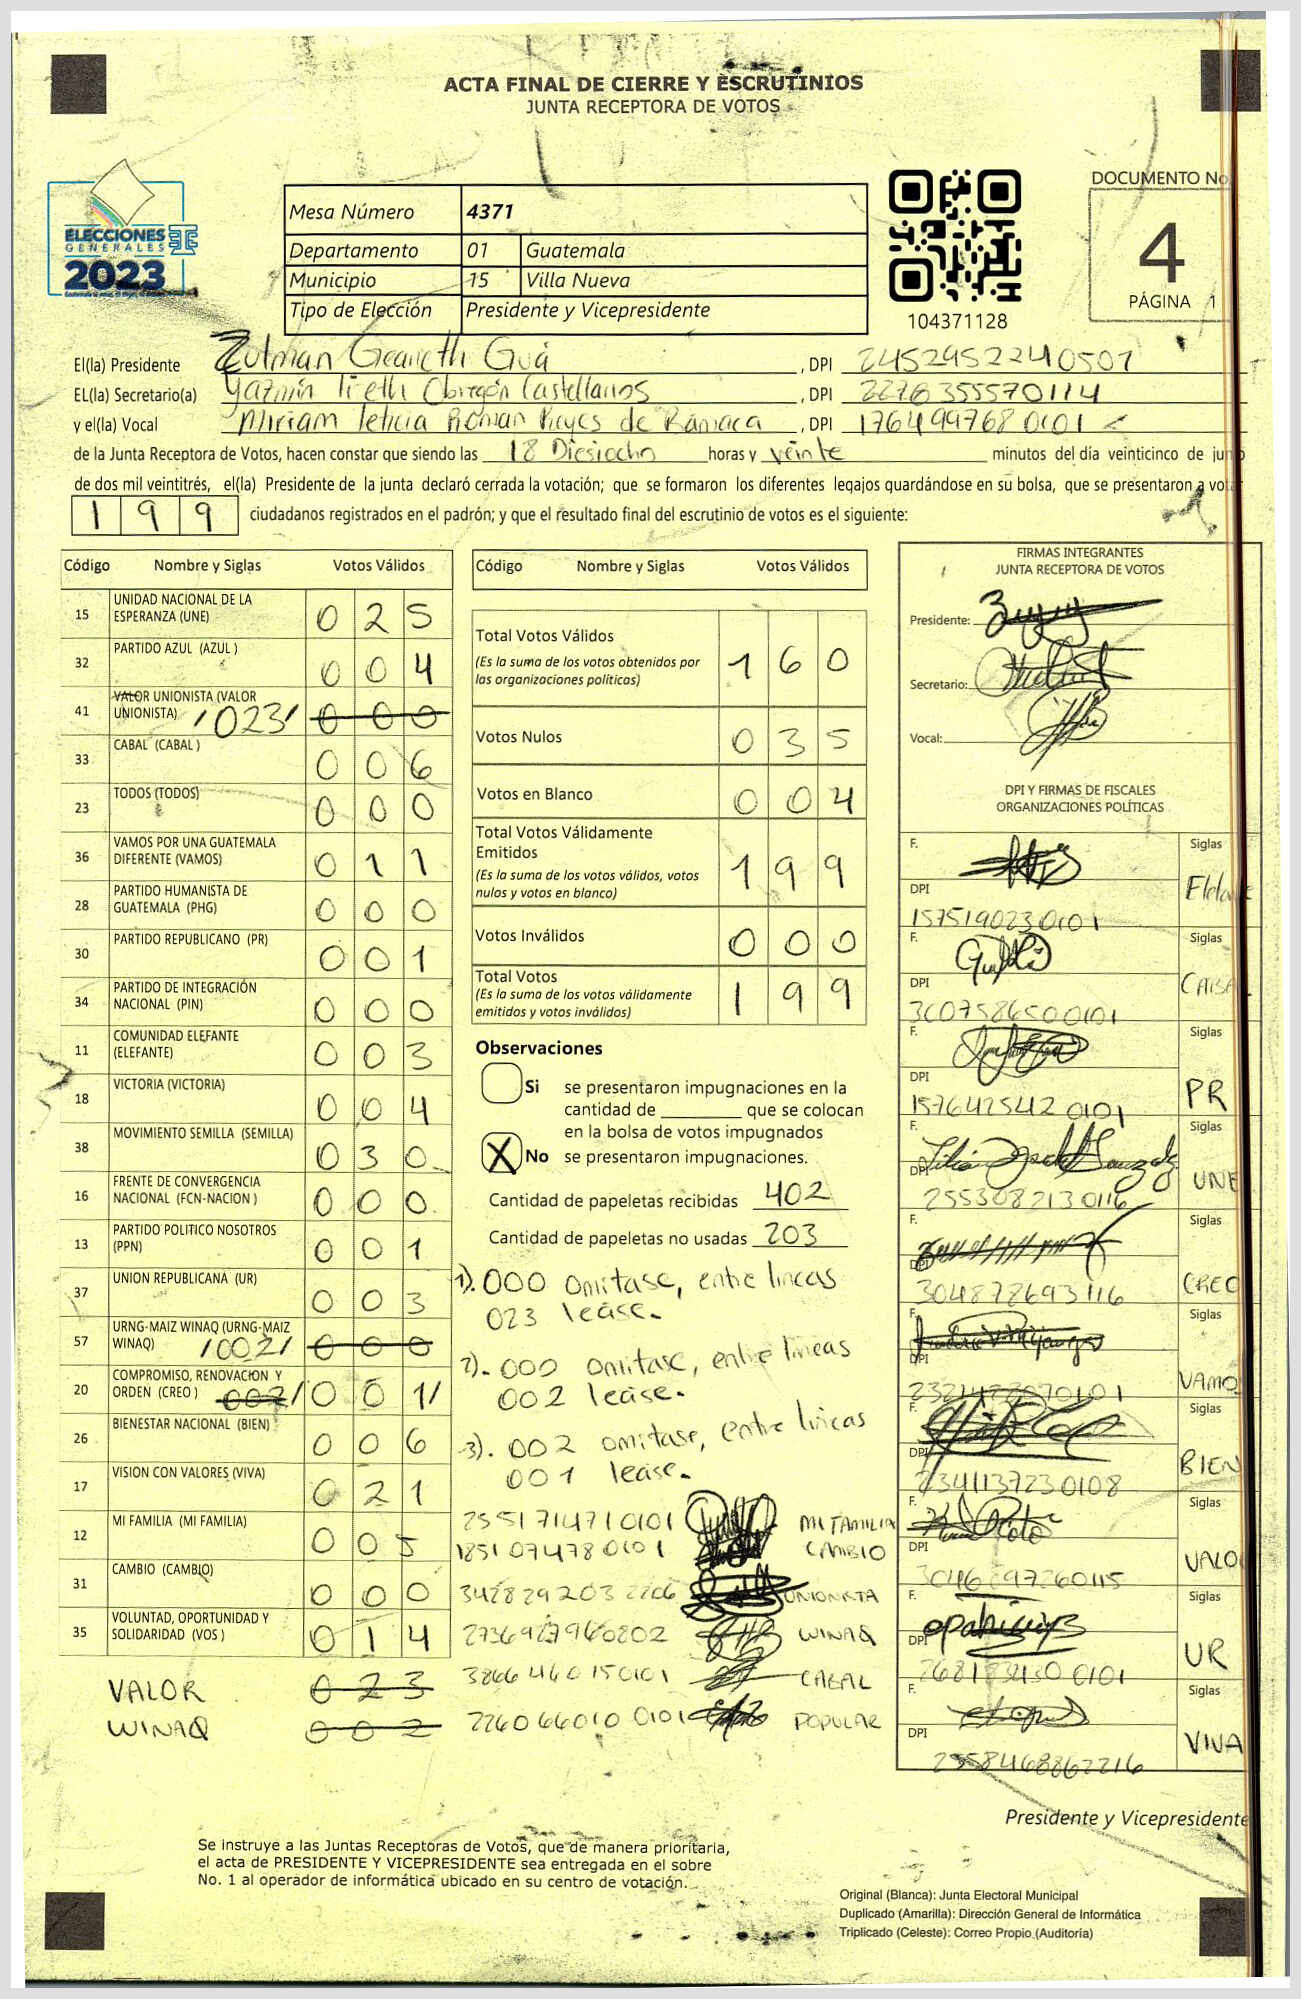 ACTA FINAL DE CIERRE Y ESCRUTINIOS
JUNTA RECEPTORA DE VOTOS
ELECCIONES
GENERALES
2023
Mesa Número 4371
Departamento 01 Guatemala
Municipio 15 Villa Nueva
Tipo de Elección Presidente y Vicepresidente
104371128
DOCUMENTO No
4
PÁGINA 1
El(la) Presidente Guá , DPI 2452952240501
EL(la) Secretario(a) Yazmín Obregón Castellanos , DPI 2278355570114
y el(la) Vocal Miriam Leticia Roman Reyes de , DPI 1764997680101
de la Junta Receptora de Votos, hacen constar que siendo las 18 Diesiocho horas y veinte minutos del día veinticinco de junio
de dos mil veintitrés, el(la) Presidente de la junta declaró cerrada la votación; que se formaron los diferentes legajos guardándose en su bolsa, que se presentaron a votar
199 ciudadanos registrados en el padrón; y que el resultado final del escrutinio de votos es el siguiente:
Código Nombre y Siglas Votos Válidos
15 UNIDAD NACIONAL DE LA
ESPERANZA (UNE) 025
32 PARTIDO AZUL (AZUL ) 004
41 VALOR UNIONISTA (VALOR
UNIONISTA) /023/ 000
33 CABAL (CABAL ) 006
23 TODOS (TODOS) 000
36 VAMOS POR UNA GUATEMALA
DIFERENTE (VAMOS) 011
28 PARTIDO HUMANISTA DE
GUATEMALA (PHG) 000
30 PARTIDO REPUBLICANO (PR) 001
34 PARTIDO DE INTEGRACIÓN
NACIONAL (PIN) 000
11 COMUNIDAD ELEFANTE
(ELEFANTE) 003
18 VICTORIA (VICTORIA) 004
38 MOVIMIENTO SEMILLA (SEMILLA) 030
16 FRENTE DE CONVERGENCIA
NACIONAL (FCN-NACION ) 000
13 PARTIDO POLITICO NOSOTROS
(PPN) 001
37 UNION REPUBLICANA (UR) 003
57 URNG-MAIZ WINAQ (URNG-MAIZ
WINAQ) /002/ 000
20 COMPROMISO, RENOVACION Y
ORDEN (CREO ) 002 /001/
26 BIENESTAR NACIONAL (BIEN) 006
17 VISION CON VALORES (VIVA) 021
12 MI FAMILIA (MI FAMILIA) 005
31 CAMBIO (CAMBIO) 000
35 VOLUNTAD, OPORTUNIDAD Y
SOLIDARIDAD (VOS ) 014
VALOR 023
WINAQ 002
Código Nombre y Siglas Votos Válidos
Total Votos Válidos 160
(Es la suma de los votos obtenidos por
las organizaciones políticas)
Votos Nulos 035
Votos en Blanco 004
Total Votos Válidamente
Emitidos 199
(Es la suma de los votos válidos, votos
nulos y votos en blanco)
Votos Inválidos 000
Total Votos 199
(Es la suma de los votos válidamente
emitidos y votos inválidos)
Observaciones
Si se presentaron impugnaciones en la
cantidad de ________ que se colocan
en la bolsa de votos impugnados
X No se presentaron impugnaciones.
Cantidad de papeletas recibidas 402
Cantidad de papeletas no usadas 203
1). 000 omitase, entre lineas
023 lease.
2). 000 omitase, entre lineas
002 lease.
3). 002 omitase, entre lineas
001 lease.
2551714710101 MI FAMILIA
1851074780101 CAMBIO
UNIONISTA
2736927960802 WINAQ
3866460150101 CABAL
2260660100101 POPULAR
FIRMAS INTEGRANTES
JUNTA RECEPTORA DE VOTOS
Presidente:
Secretario:
Vocal:
DPI Y FIRMAS DE FISCALES
ORGANIZACIONES POLÍTICAS
F. Siglas
DPI
1575190230101
F. Siglas
DPI CABAL
3607586500101
F. Siglas
DPI PR
1576425420101
F. Siglas
DPI UNE
2553082130116
F. Siglas
DPI CREO
3048728693116
F. Siglas
DPI VAMO
F. Siglas
DPI BIEN
2341137230108
F. Siglas
DPI VALO
F. Siglas
DPI UR
F. Siglas
DPI VIVA
2558468862216
Presidente y Vicepresidente
Se instruye a las Juntas Receptoras de Votos, que de manera prioritaria,
el acta de PRESIDENTE Y VICEPRESIDENTE sea entregada en el sobre
No. 1 al operador de informática ubicado en su centro de votación.
Original (Blanca): Junta Electoral Municipal
Duplicado (Amarilla): Dirección General de Informática
Triplicado (Celeste): Correo Propio (Auditoría)